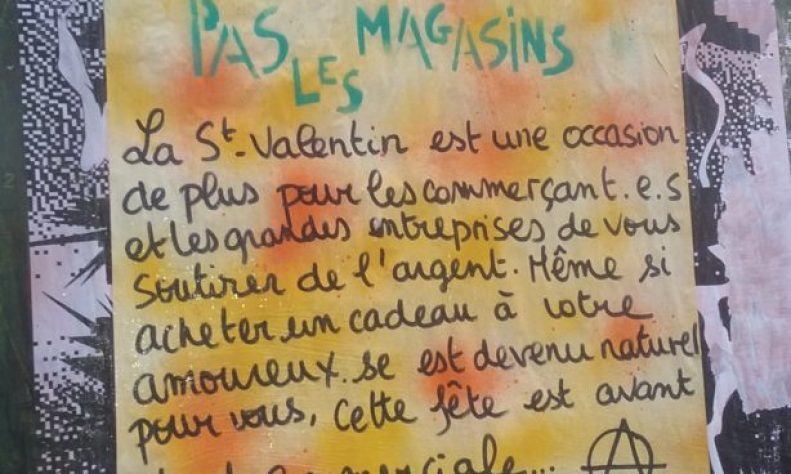 PAS LES MAGASINS
La St-Valentin est une occasion
de plus pour les commerçant.e.s
et les grandes entreprises de vous
soutirer de l'argent. Même si
acheter un cadeau à votre
amoureux.se est devenu naturel
pour vous, cette fête est avant